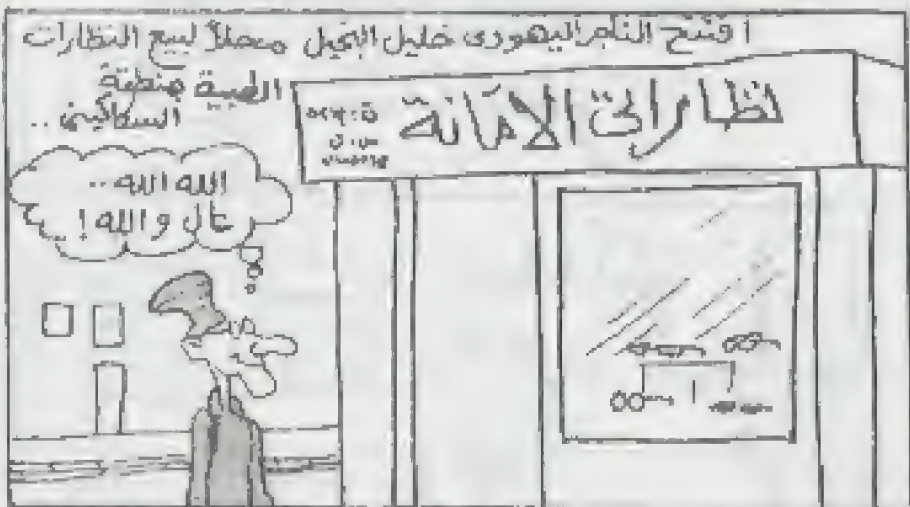 افتتح التاجر اليهودى خليل البخيل محلاً لبيع النظارات
الطبية بمنطقة
السكاكينى ..
نظاراتى الأمانة
الله الله ..
عال والله !